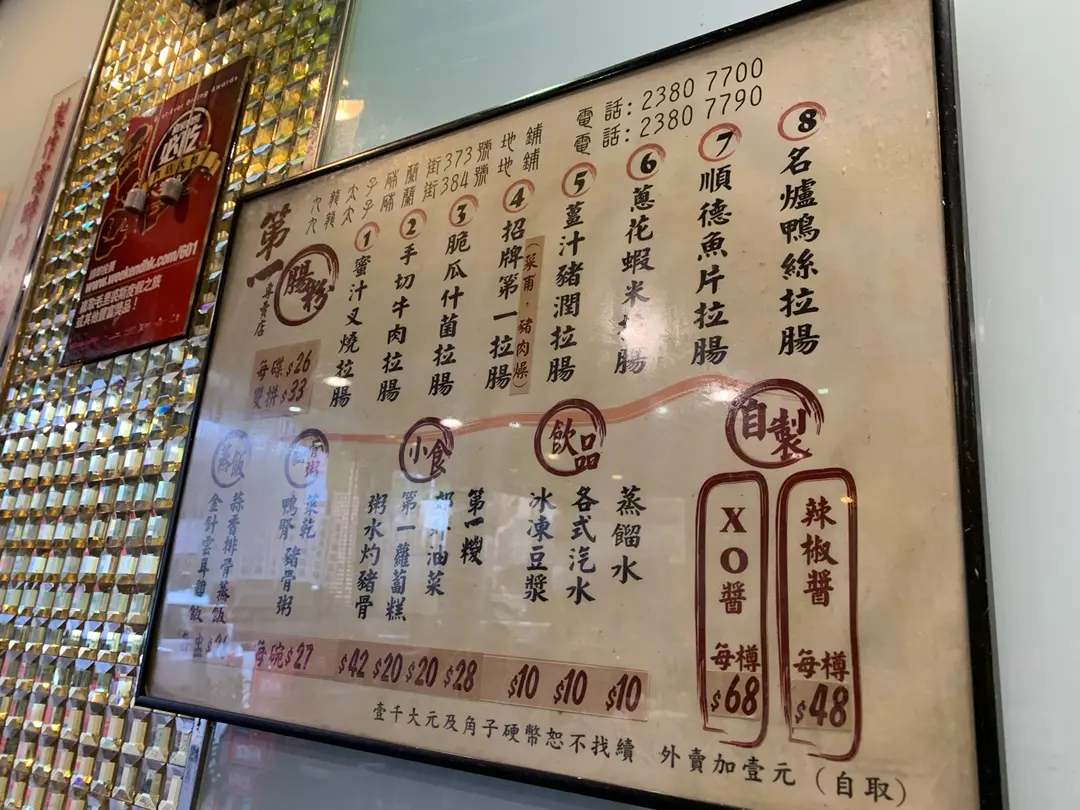 穴頭太子砵蘭街373號地鋪
穴頭太子砵蘭街384號地鋪
電話: 2380 7700
電話: 2380 7790
第一
腸粉
專賣店
每碟$26
雙拼$33
1 蜜汁叉燒拉腸
2 手切牛肉拉腸
3 脆瓜什菌拉腸
4 招牌第一拉腸
(菜甫,豬肉燥)
5 薑汁豬潤拉腸
6 蔥花蝦米拉腸
7 順德魚片拉腸
8 名爐鴨絲拉腸
蒸飯
蒜香排骨蒸飯
金針雲耳雞飯
骨粥
菜乾
鴨腎豬骨粥
每碗$27
小食
粥水灼豬骨
$42
第一蘿蔔糕
$20
油菜
$20
第一糉
$28
飲品
冰凍豆漿
$10
各式汽水
$10
蒸餾水
$10
自製
XO醬
每樽
$68
辣椒醬
每樽
$48
壹千大元及角子硬幣恕不找續 外賣加壹元(自取)
www.weekendhk.com/601